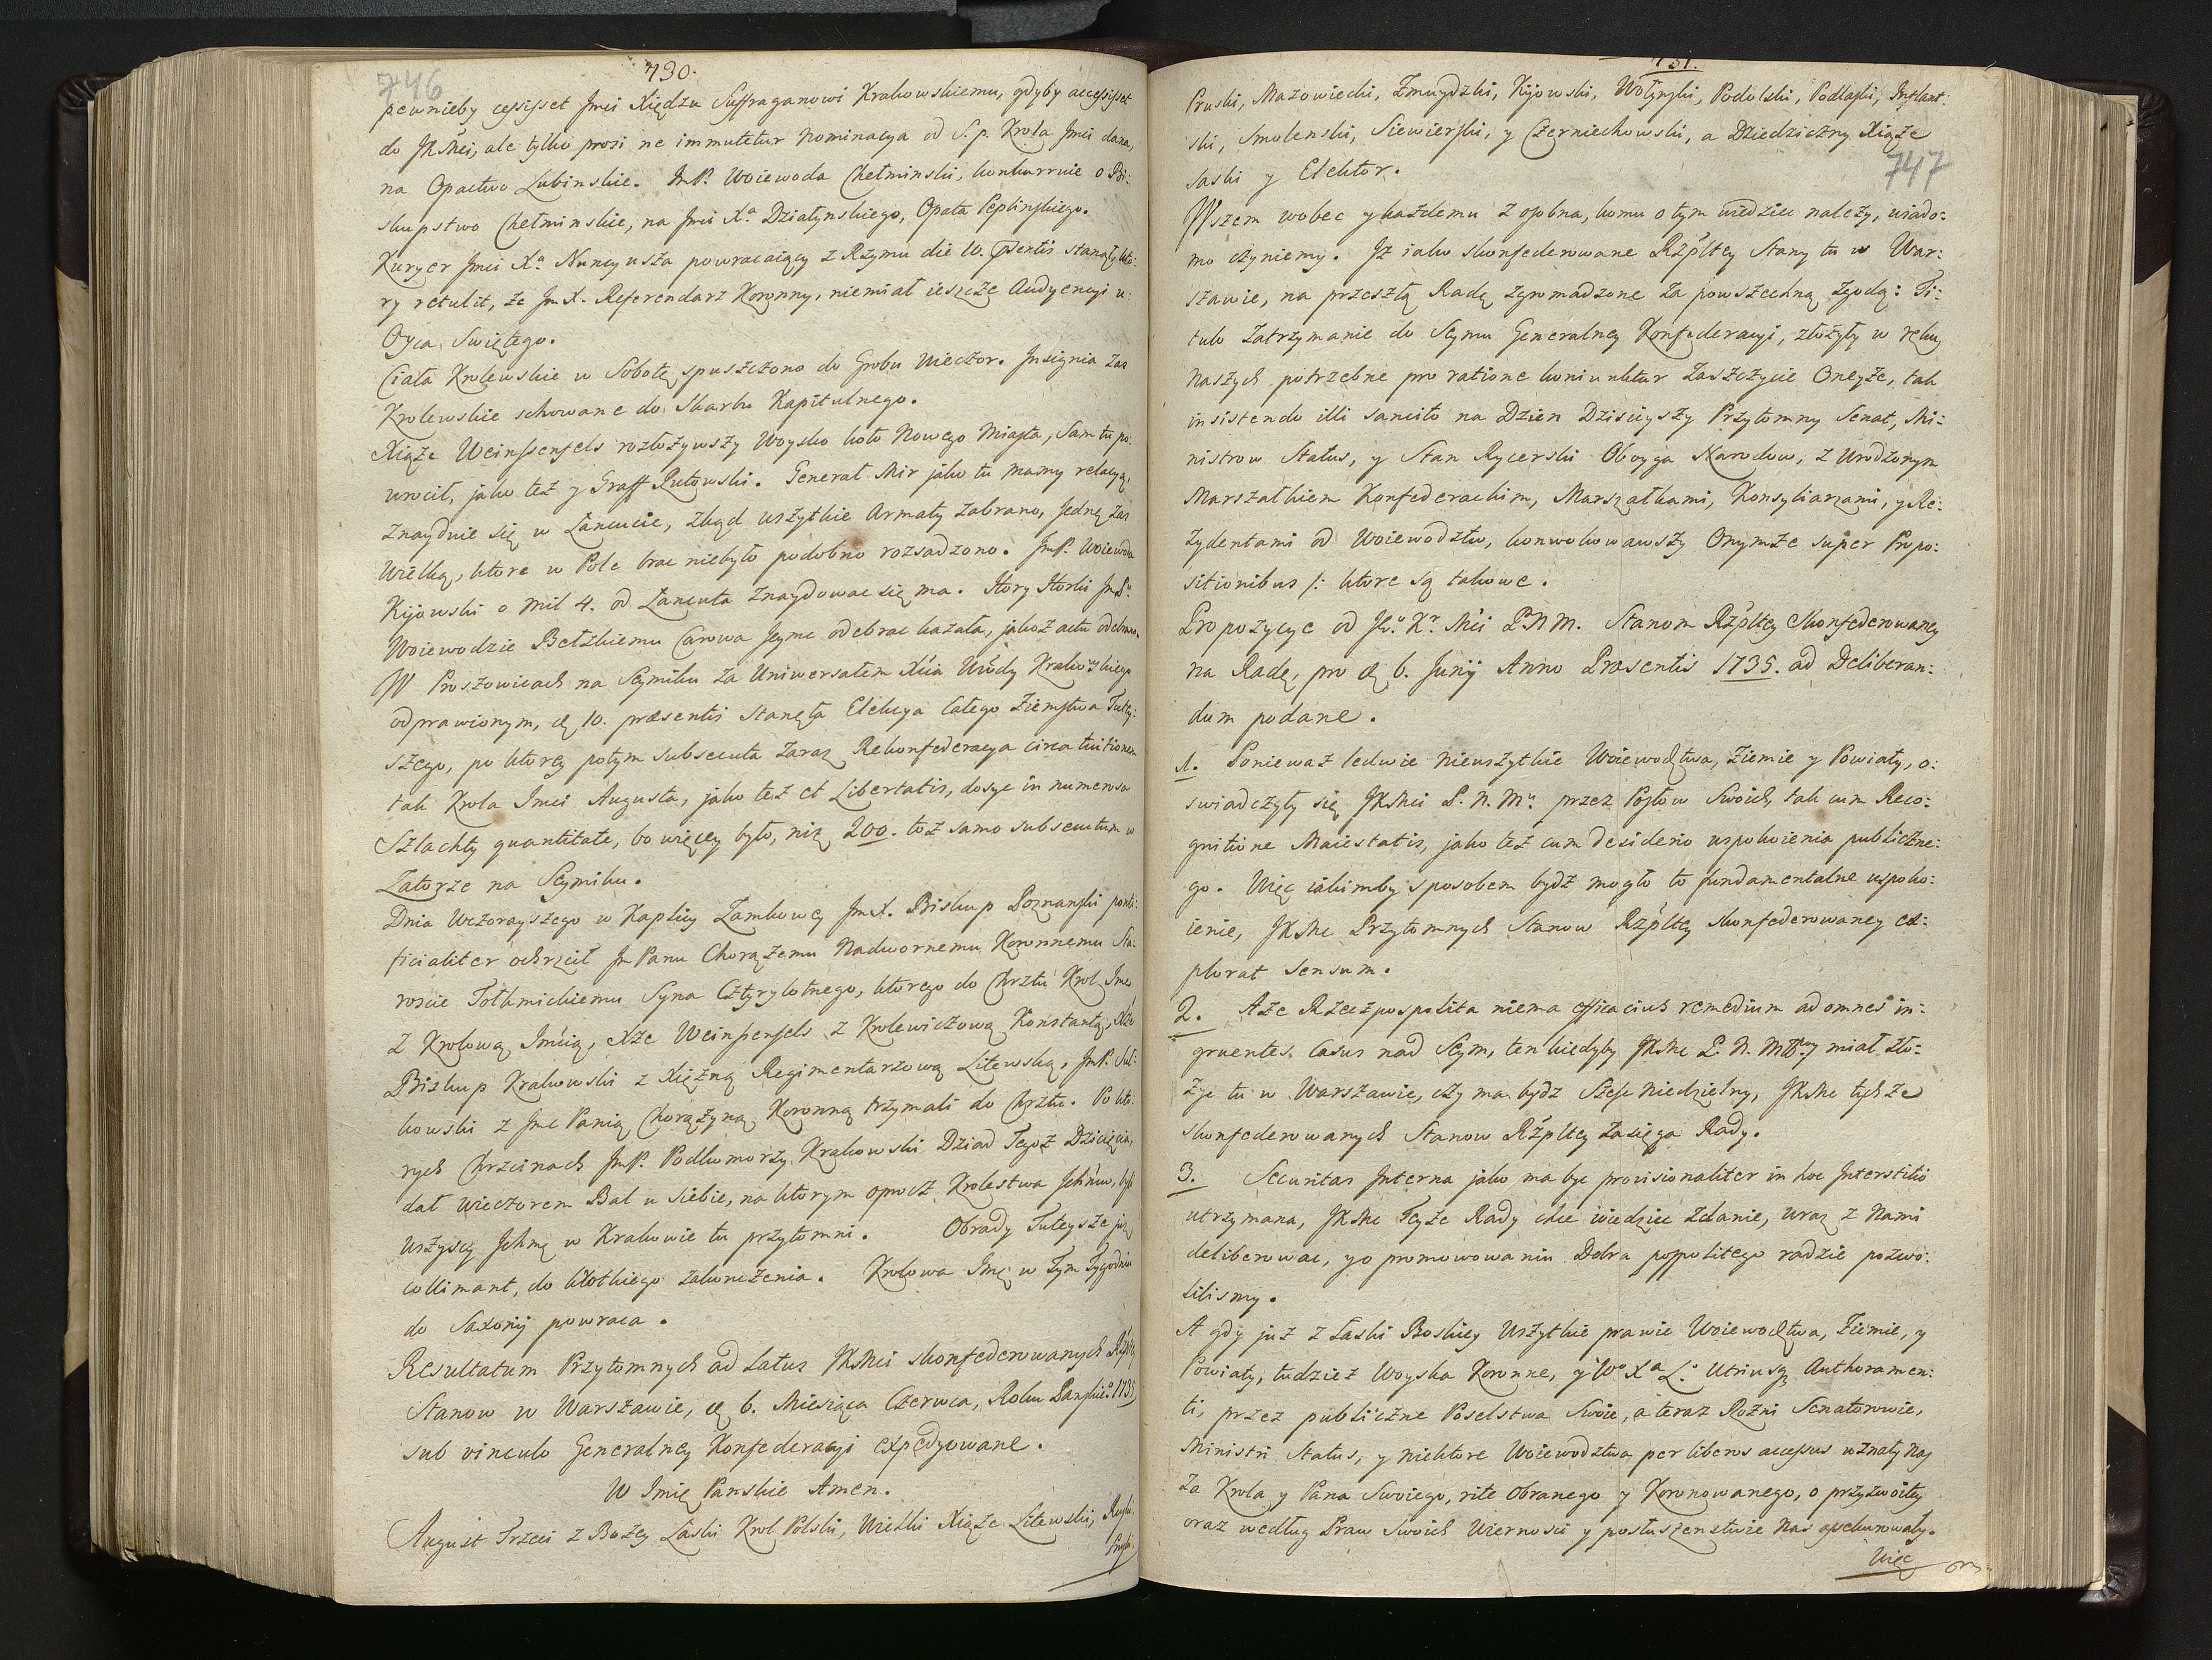 746
730.
pewnieby cessisset Jmci Xiędzu Suffraganowi Krakowskiemu, gdyby accessisset
do JKMci, ale tylko prosi ne immutetur Nominacya od S. p. Krola Jmci dana,
na Opactwo Lubinskie. JmP. Woiewoda Chełminski, konkurruie o Bi:
skupstwo Chełminskie, na Jmci Xa. Działynskiego, Opata Peplinskiego.
Kuryer Jmci Xa. Nuncyusza powracaiący z Rzymu die 10. praesentis stanął, kto:
ry retulit, że Jm X. Referendarz Koronny, niemiał ieszcze Audyencyi u
Oyca Swiętego.
Ciała Krolewskie w Sobotę spuszczono do Grobu wieczor. Insignia zas
Krolewskie schowane do Skarbu Kapitulnego.
Xiąże Weinssenfels rozłożywszy Woysko koło Nowego Miasta, sam tu po:
wrocił, jako też y Graff Rutowski. Generał Mir jako tu mamy relacyą,
znayduie się w Łancucie, zkąd wszytkie Armaty zabrano, jednę zas
wielką, ktore w Pole brac niebyło podobno rozsadzono. JmP. Woiewoda
Kijowski o mil 4. od Łancuta znaydowac się ma. Story Horki JmPu.
Woiewodzie Bełzkiemu Carowa Jeyme odebrac kazała, jakoż actu odebrano.
W Proszowicach na Seymiku za Uniwersałem Xcia Wody Krakowskiego
odprawionym, die 10. praesentis stanęła Elekcya całego Ziemstwa Tutey:
szego, po ktorey potym subsecuta zaraz Rekonfederacya circa tuitionem
tak Krola Imci Augusta, jako też et Libertatis, dosyc in numerosa
Szlachty quantitate, bo więcey było, niż 200. toż samo subsecutum w
Zatorze na Seymiku.
Dnia wczorayszego w Kaplicy Zamkowey Jm X. Biskup Poznanski ponti:
ficialiter ochrzcił Jm Panu Chorążemu Nadwornemu Koronnemu Sta:
roscie Tołkmickiemu Syna Cztyryletnego, ktorego do Chrztu Krol Jmc
z Krolową Jmcią, Xże Weinssenfels z Krolewiczową Konstantą, Xże
Biskup Krakowski z Xiężną Regimentarzową Litewską, JmP. Suł:
kowski z Jmc Panią Chorążyną Koronną trzymali do Chrztu. Po kto:
rych Chrzcinach JmP. Podkomorzy Krakowski Dziad Tegoż Dziecięcia,
dał wieczorem Bal u siebie, na ktorym oprocz Krolestwa Ichmciow, byli
wszyscy Ichmc w Krakowie tu przytomni. Obrady Tuteysze już
collimant, do krotkiego zakonczenia. Krolowa Jmc w tym Tygodniu
do Saxonij powraca.
Resultatum Przytomnych ad Latus JKMci skonfederowanych Rzpltey
Stanow w Warszawie, die 6. Miesiąca Czerwca, Roku Panskieo. 1735
sub vinculo Generalney Konfederacyi expedyowane.
W Imię Panskie Amen.
August Trzeci z Bożey Łaski Krol Polski, Wielki Xiąże Litewski, Ruski
Pruski
731.
Pruski, Mazowiecki, Zmuydzki, Kijowski, Wołynski, Podolski, Podlaski, Inflant:
ski, Smolenski, Siewierski, y Czerniechowski, a Dziedziczny Xiąże
Saski y Elektor.
747
Wszem wobec y każdemu z osobna, komu o tym wiedziec należy, wiado:
mo czyniemy. Iż iako skonfederowane Rzpltey Stany tu w War:
szawie, na przeszłą Radę zgromadzone za powszechną zgodą: Ti:
tulo Zatrzymanie do Seymu Generalney Konfederacyi, złożyły w ręku
Naszych potrzebne pro ratione koniunktur Zaszczycie Oneyże, tak
insistendo illi sancito na Dzien Dzisieyszy Przytomny Senat, Mi:
nistrow Status, y Stan Rycerski Oboyga Narodow, z Urodzonym
Marszałkiem Konfederackim, Marszałkami, Konsyliarzami, y Re:
zydentami od Woiewodztw, konwokowawszy Onymże super Propo:
sitionibus /: ktore są takowe.
Propozycye od Jo. Kr. Mci P.N.M. Stanom Rzpltey Skonfederowaney
na Radę, pro die 6. Junij Anno Praesentis 1735. ad Deliberan:
dum podane.
1. Poniewaz ledwie niewszytkie Woiewodztwa, Ziemie y Powiaty, o:
swiadczyły się JKMci P. N. Mu. przez Posłow Swoich, tak cum Reco:
gnitione Maiestatis, jako też cum desiderio uspokoienia publiczne:
go. Więc iakimby sposobem bydż mogło to fundamentalne uspoko:
ienie, JKMc Przytomnych Stanow Rzpltey skonfederowaney ex:
plorat sensum.
2. Aże Rzeczpospolita niema efficacius remedium ad omnes in:
gruentes Casus nad Seym, ten kiedyby JKMc P. N. miał zło:
życ tu w Warszawie, czy ma bydz Szesc Niedzielny, JKMc tychże
skonfederowanych Stanow Rzpltey zasięga Rady.
3. Securitas Interna jako ma byc provisionaliter in hoc Interstitio
utrzymana, JKMc Teyże Rady chce wiedziec zdanie, wraz z Nami
deliberowac, y o promowowaniu Dobra pospolitego radzic pozwo:
lilismy.
A gdy już z Łaski Boskiey wszytkie prawie Woiewodztwa, Ziemie, y
Powiaty, tudzież Woyska Koronne, y Wo Xa L. utriusq Authoramen:
ti, przez publiczne Poselstwa swoie, a teraz Rożni Senatorowie,
Ministri Status, y niektore Woiewodztwa per liberos accessus uznały Nas
za Krola y Pana Swoiego, rite obranego y Koronowanego, o przyzwoitey
oraz według Praw Swoich Wiernosci y posłuszenstwie Nas assekurowały.
Więc